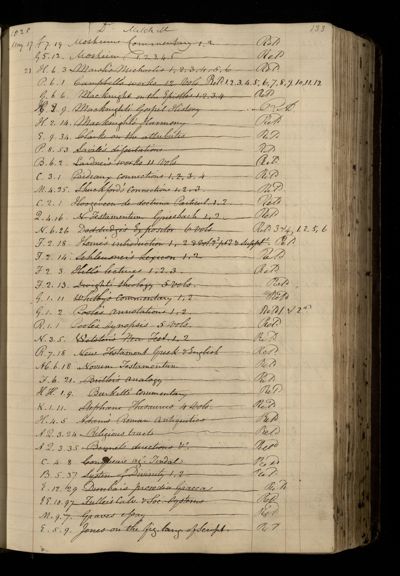 Dr Mitchell 133
1828
May 17 F. 7. 19 Mosheims Commentary 1, 2 Retd
G. 5. 13. Mosheim 1 2 3 4 5 Retd
21 H. 6. 3 Marsh's Michaelis 1, 2, 3, 4, 5, 6 Retd
P. 6. 1. Campbells works Vols Retd 1 2 3, 4, 5, 6, 7, 8, 9, 10, 11, 12
G. 6. 6 Macknight on the Epistles 1, 2, 3, 4 Retd
2. 9. Macknight's Gospel History
H. 2. 14. Macknight's Harmony Retd
E. 9. 34 Clark on the attributes Retd
P. 8. 53 dissertations Retd
B. 6. 2. Lardner's works 11 Vols Retd
C. 3. 1 Prideaux connections 1, 2, 3, 4 Retd
M. 4. 25. Shuckford's Connections 1, 2, 3 Retd
C. 2. 1 de doctrina 1, 2 Retd
2. 4. 16. N. Testamentum Griesbach 1, 2 Retd
N. 6. 26 Doddridge's Expositor 6 Vols Retd 3 & 4, 1, 2, 5, 6
F. 2. 18 Horne's introduction 1, 2 & suppt Retd
F. 2. 14. Schleusner's Lexicon 1, 2 Retd
F. 2. 3 Hill's lectures 1. 2. 3 Retd
F. 2. 13. Dwight's theology 5 Vols. Retd
G. 1. 11 Whitby's Commentary 1, 2 Retd
G. 1. 2 Poole's Annotations 1, 2 Retd 1 & 2d
R. 1. 1 Poole's Synopsis 5 Vols Retd
N. 3. 5. Wetstein's New Test. 1, 2 Retd
R. 7. 18 New Testament Greek & English Retd
N6. 6. 18 Novum Testamentum Retd
F. 6. 21. Butler's Analogy Retd
H H. 1. 9. Burkett's Commentary Retd
K. 1. 11. Stephano Thesaurus 4 Vols. Retd
H. 4. 5 Adams Roman Antiquities Retd
N 2. 3. 24 Religious tracts Retd
N 2. 3. 35 Bennet's directions &c. Retd
C. 4. 8 Conybeare agt. Tindal Retd
B. 5. 37 System of Divinity 1, 2 Retd
E. 12. 29 prosodia Graeca Retd
E. 10. 97 Fuller's Calv. & Soc. Systems Retd
M. 9. 7. Graves essay Retd
E. 5. 9. Jones on the fig. lang. of Script. Retd